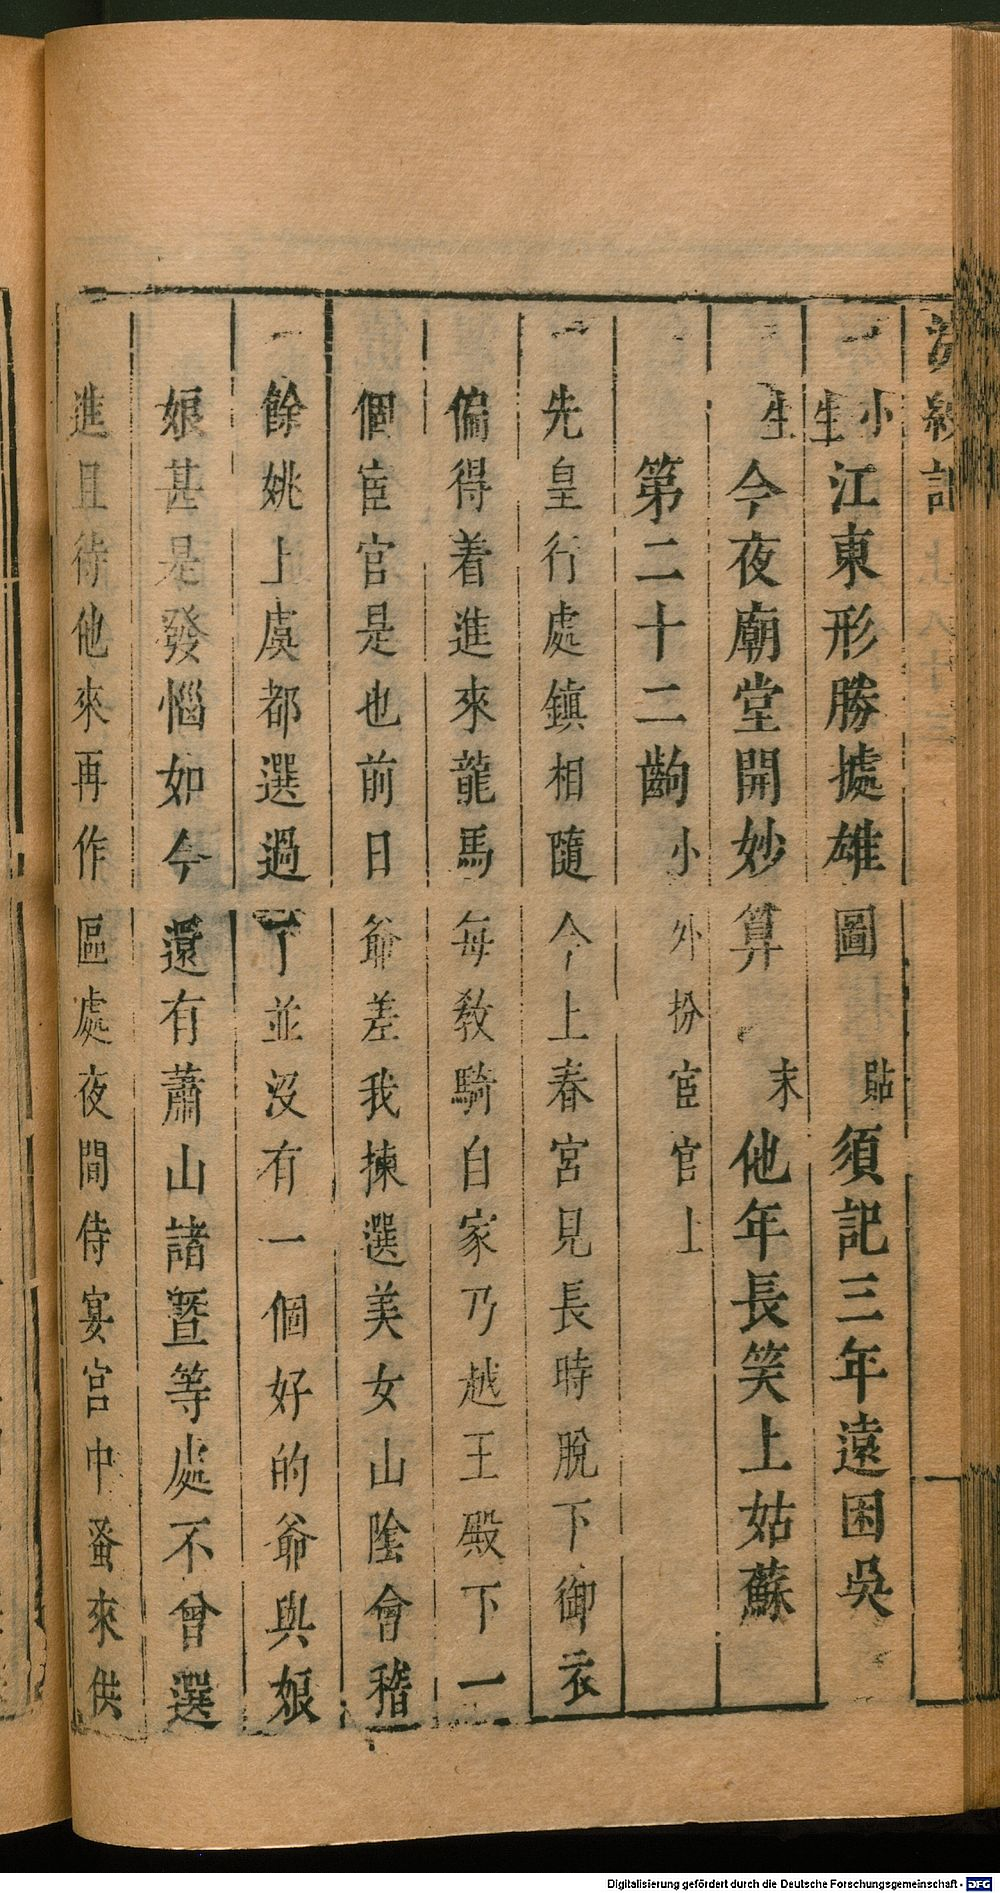 浣紗記 上 八十三
小生 江東形勝據雄圖 貼 須記三年遠困吳
生 今夜廟堂開妙算 末 他年長笑上姑蘇
第二十二齣 小外扮宦官上
先皇行處鎮相隨今上春宮見長時脫下御衣
偏得着進來龍馬每教騎自家乃越王殿下一
個宦官是也前日爺差我揀選美女山陰會稽
餘姚上虞都選過了並沒有一個好的爺與娘
娘甚是發惱如今還有蕭山諸暨等處不曾選
進且待他來再作區處夜間侍宴宮中蚤來供
Digitalisierung gefördert durch die Deutsche Forschungsgemeinschaft - DFG